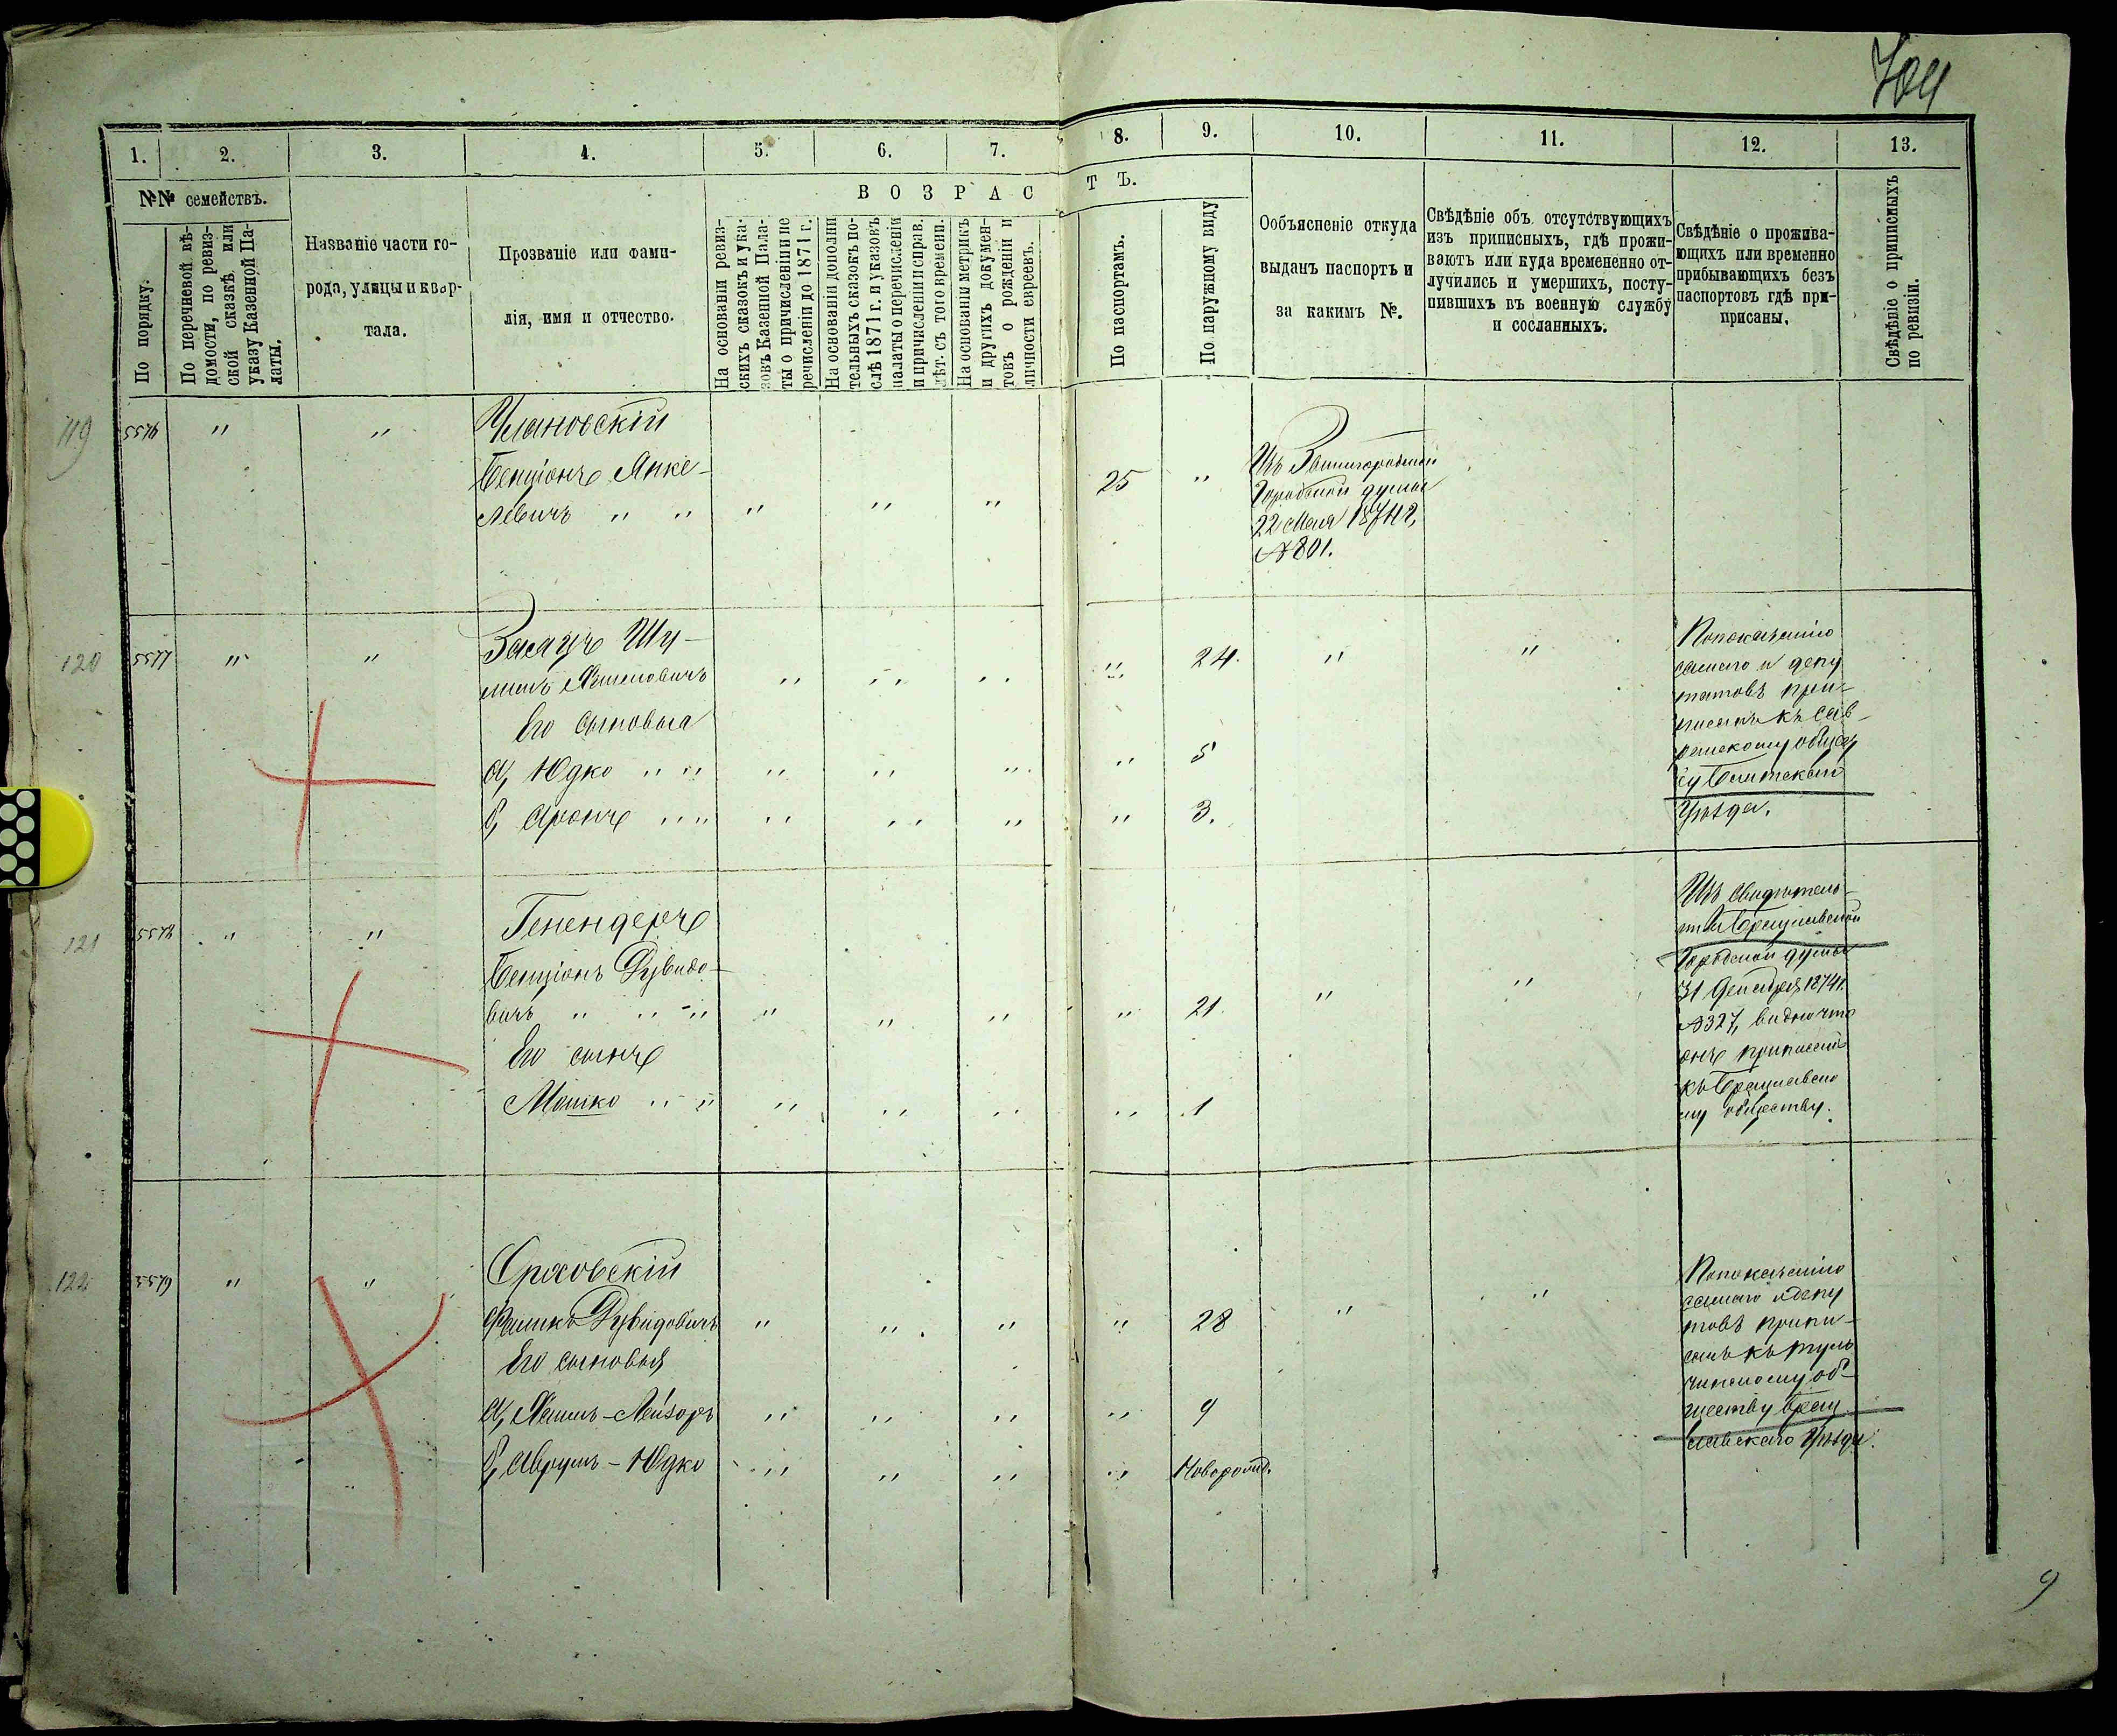 704
1. 2. 3. 4. 5. 6. 7. 8. 9. 10. 11. 12. 13.
№№ семействъ.
По порядку.
По перечневой вѣ-
домости, по ревиз-
ской сказкѣ или
указу Казенной Па-
латы.
Названіе части го-
рода, улицы и квар-
тала.
Прозваніе или фами-
лія, имя и отчество.
ВОЗРАСТЪ.
На основаніи ревиз-
скихъ сказокъ и ука-
зовъ Казенной Пала-
ты о причисленіи и пе
речисленіи до 1871 г.
На основаніи дополни
тельныхъ сказокъ по-
слѣ 1871 г. и указовъ
палаты о перечисленіи
и причисленіи и справ.
лѣт. съ того времени.
На основаніи метрикъ
и другихъ докумен-
товъ о рожденіи и
личности евреевъ.
По паспортамъ.
По наружному виду
Ообъясненіе откуда
выданъ паспортъ и
за какимъ №.
Свѣдѣніе объ отсутствующихъ
изъ приписныхъ, гдѣ прожи-
ваютъ или куда временено от-
лучились и умершихъ, посту-
пившихъ въ военную службу
и сосланныхъ.
Свѣдѣніе о прожива-
ющихъ или временно
прибывающихъ безъ
паспортовъ гдѣ при-
писаны.
Свѣдѣніе о приписныхъ
по ревизіи.
119 " "
Улановскій
Бенціонъ Янке-
левичъ " " " " " 25 "
Изъ Звинигородской
Городской думы
22 Мая 1874 г.
№ 801.
120 " "
Заяцъ Шу-
" " " " 24. " "
Его сыновья
а, Юдко " " " " " " 5
б, Аронъ " " " " " " 3.
По показанію
самаго и депу
татовъ при-
писанъ къ Сав
ранскому общес
Балтскаго
Уѣзда.
121 " "
Генендеръ
Бенціонъ Дувидо-
вичъ " " " " " " " 21. " "
Его сынъ
Мошко " " " " " " 1
Изъ свидѣтель-
Брацлавской
Городской думы
31 Декабря 1874 г.
№ 327, видно что
онъ приписанъ
къ Брацлавско
му обществу.
122 " "
Ороховскій
Дувидовичъ " " " " 28 " "
Его сыновья
а, Хаимъ-Лейзоръ " " " " 9
б, Аврумъ-Юдко " " " " Новорожд.
По показанію
самаго и депу
товъ припи-
санъ къ Туль
чинскому об-
ществу Брац
лавскаго Уѣзда.
9